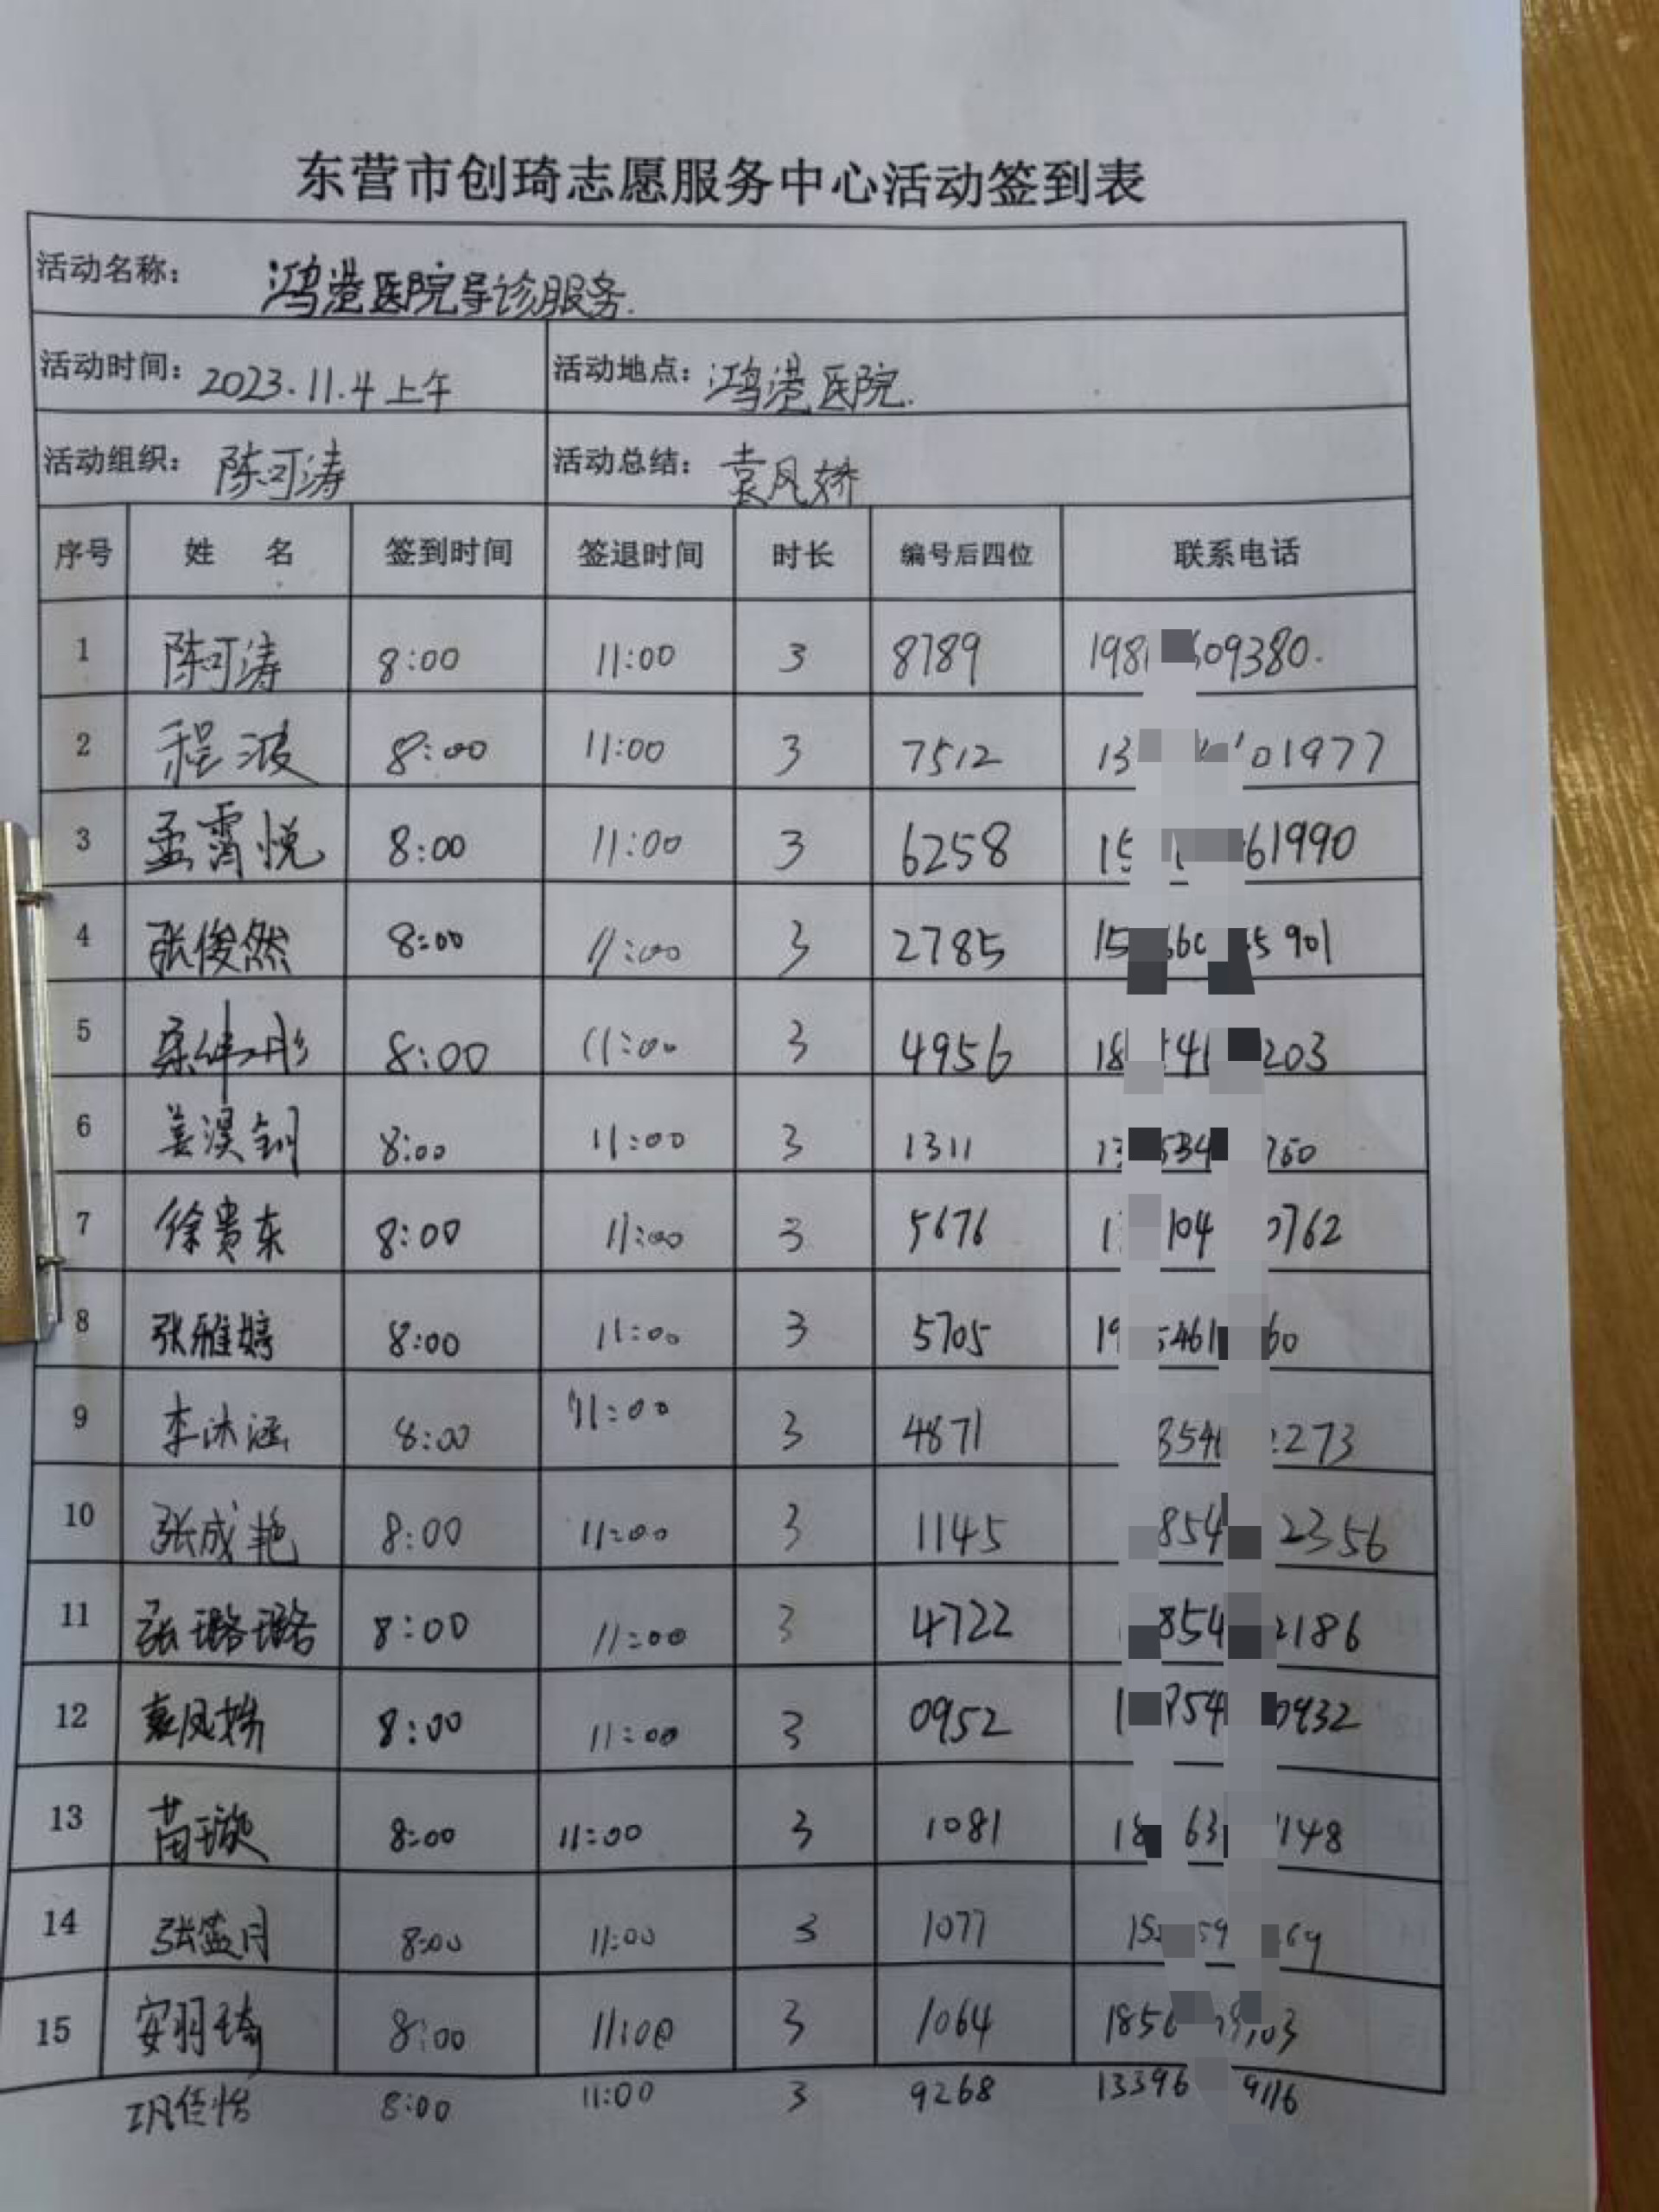 东营市创琦志愿服务中心活动签到表
活动名称： 鸿港医院导诊服务.
活动时间： 2023.11.4上午 活动地点： 鸿港医院.
活动组织： 陈可涛 活动总结： 袁凤娇
序号 姓 名 签到时间 签退时间 时长 编号后四位 联系电话
1 陈可涛 8:00 11:00 3 8789 198 09380.
2 程波 8:00 11:00 3 7512 13 01977
3 孟霄悦 8:00 11:00 3 6258 15 61990
4 张俊然 8:00 11:00 3 2785 15 5901
5 8:00 11:00 3 4956 18 203
6 8:00 11:00 3 1311 13 534 760
7 徐贵东 8:00 11:00 3 5676 1 104 0762
8 张雅婷 8:00 11:00 3 5705 19 5461 60
9 李沐涵 8:00 11:00 3 4871 854 2273
10 张成艳 8:00 11:00 3 1145 854 2356
11 张璐璐 8:00 11:00 3 4722 854 2186
12 袁凤娇 8:00 11:00 3 0952 1 854 0932
13 苗璇 8:00 11:00 3 1081 18 63 148
14 8:00 11:00 3 1077 15 59 69
15 安羽琦 8:00 11:00 3 1064 1856 03
巩佳怡 8:00 11:00 3 9268 13396 9116